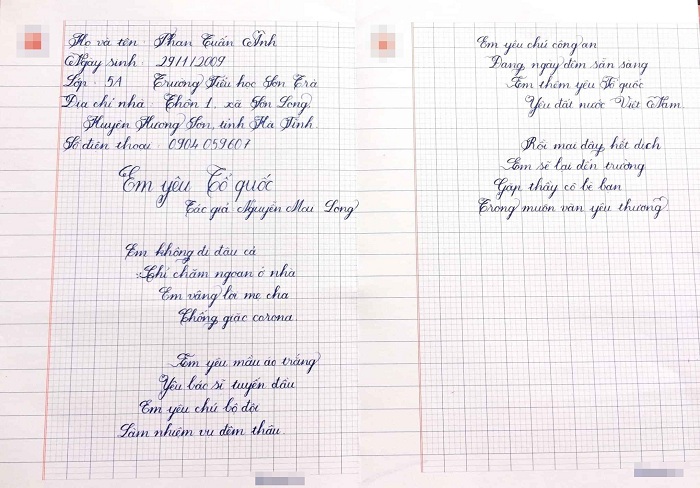 Họ và tên : Phan Tuấn Anh
Ngày sinh : 29/1/2009
Lớp : 5A Trường Tiểu học Sơn Trà
Địa chỉ nhà : Thôn 1, xã Sơn Long
Huyện Hương Sơn, tỉnh Hà Tĩnh.
Số điện thoại : 0904 059607
Em yêu Tổ quốc
Tác giả Nguyễn Mau Long
Em không đi đâu cả
Chỉ chăm ngoan ở nhà
Em vâng lời mẹ cha
Chống giặc corona.
Em yêu mầu áo trắng
Yêu bác sĩ tuyến đầu
Em yêu chú bộ đội
Làm nhiệm vụ đêm thâu.
Em yêu chú công an
Đang ngày đêm sẵn sàng
Em thêm yêu Tổ quốc
Yêu đất nước Việt Nam.
Rồi mai đây, hết dịch
Em sẽ lại đến trường
Gặp thầy cô bè bạn
Trong muôn vàn yêu thương